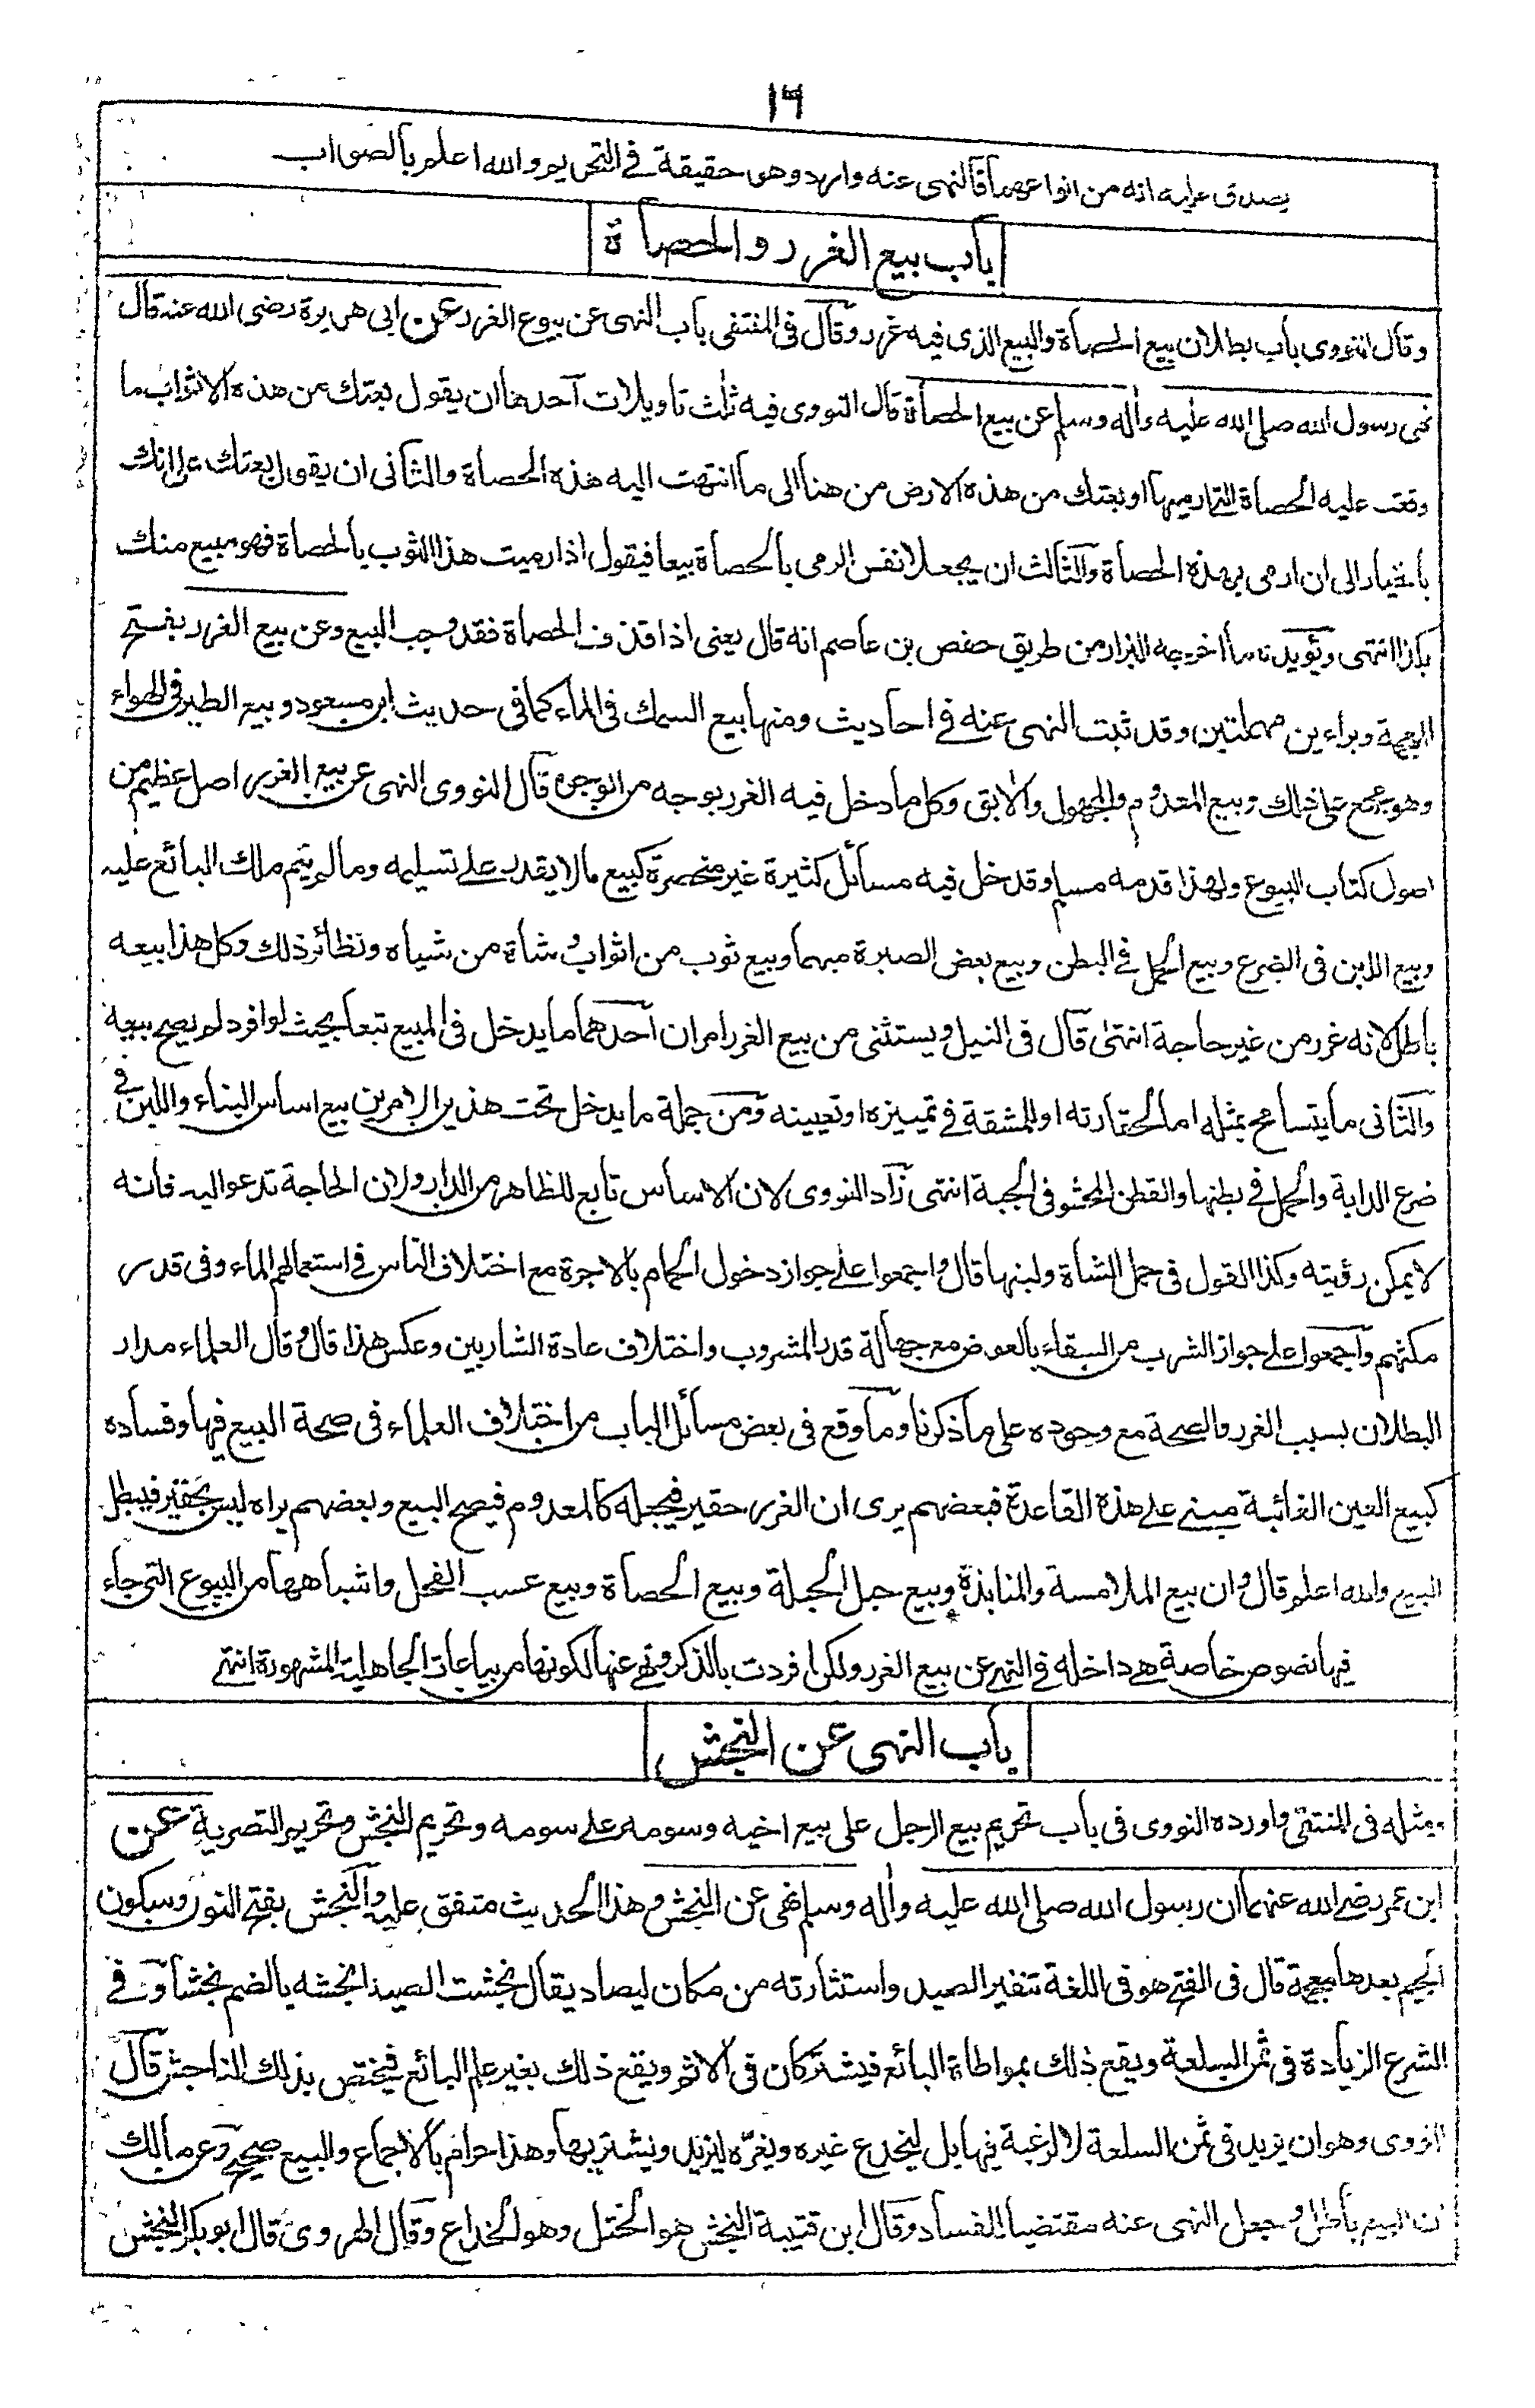 ١٦
يصدق عليه انه من انواعهما فالنهى عنه وارد وهو حقيقة في التحريم والله اعلم بالصواب
باب بيع الغرر والحصاة
وقال النووى باب بطلان بيع الحصاة والبيع الذى فيه غرر وقال فى المنتقى باب النهى عن بيوع الغرر عن ابى هريرة رضى الله عنه قال
نهى رسول الله صلى الله عليه واله وسلم عن بيع الحصاة قال النووى فيه ثلث تاويلات احدها ان يقول بعتك من هذه الاثواب ما
وقعت عليه الحصاة التى ارميها او بعتك من هذه الارض من هنا الى ما انتهت اليه هذه الحصاة والثانى ان يقول بعتك على انك
بالخيار الى ان ارمى بهذه الحصاة والثالث ان يجعلا نفس الرمى بالحصاة بيعا فيقول اذا رميت هذا الثوب بالحصاة فهو مبيع منك
بكذا انتهى ويؤيده ما اخرجه البزار من طريق حفص بن عاصم انه قال يعنى اذا قذف الحصاة فقد وجب البيع وعن بيع الغرر بفتح
المعجمة وبراءين مهملتين وقد ثبت النهى عنه في احاديث ومنها بيع السمك فى الماء كما فى حديث ابن مسعود وبيع الطير فى الهواء
وهو مجمع على ذلك وبيع المعدوم والمجهول والآبق وكل ما دخل فيه الغرر بوجه من الوجوه قال النووى النهى عن بيع الغرر اصل عظيم من
اصول كتاب البيوع ولهذا قدمه مسلم وقد دخل فيه مسائل كثيرة غير منحصرة كبيع مالا يقدر على تسليمه وما لم يتم ملك البائع عليه
وبيع اللبن فى الضرع وبيع الحمل في البطن وبيع بعض الصبرة مبهما وبيع ثوب من اثواب وشاة من شياه ونظائر ذلك وكل هذا بيعه
باطل لانه غرر من غير حاجة انتهى قال فى النيل ويستثنى من بيع الغرر امران احدهما ما يدخل فى المبيع تبعا بحيث لو افرد لم يصح بيعه
والثانى ما يتسامح بمثله اما لحقارته او للمشقة في تمييزه او تعيينه ومن جملة ما يدخل تحت هذين الامرين بيع اساس البناء واللبن في
ضرع الدابة والحمل في بطنها والقطن المحشو فى الجبة انتهى زاد النووى لان الاساس تابع للظاهر من الدار ولان الحاجة تدعو اليه فانه
لا يمكن رؤيته وكذا القول فى حمل الشاة ولبنها قال واجمعوا على جواز دخول الحمام بالاجرة مع اختلاف الناس في استعمالهم الماء وفى قدر
مكثهم واجمعوا على جواز الشرب من السقاء بالعوض مع جهالة قدر المشروب واختلاف عادة الشاربين وعكس هذا قال وقال العلماء مدار
البطلان بسبب الغرر والصحة مع وجوده على ما ذكرنا وما وقع فى بعض مسائل الباب من اختلاف العلماء فى صحة البيع فيها وفساده
كبيع العين الغائبة مبنى على هذه القاعدة فبعضهم يرى ان الغرر حقير فيجعله كالمعدوم فيصح البيع وبعضهم يراه ليس بحقير فيبطل
البيع والله اعلم قال وان بيع الملامسة والمنابذة وبيع حبل الحبلة وبيع الحصاة وبيع عسب الفحل واشباهها من البيوع التى جاء
فيها نصوص خاصة هى داخله في النهى عن بيع الغرر ولكن افردت بالذكر ونهى عنها لكونها من بياعات الجاهلية المشهورة انتهى
باب النهى عن النجش
ومثله فى المنتقى واورده النووى فى باب تحريم بيع الرجل على بيع اخيه وسومه على سومه وتحريم النجش وتحريم التصرية عن
ابن عمر رضى الله عنهما ان رسول الله صلى الله عليه واله وسلم نهى عن النجش وهذا الحديث متفق عليه والنجش بفتح النون وسكون
الجيم بعدها معجمة قال فى الفتح هو فى اللغة تنفير الصيد واستثارته من مكان ليصاد يقال نجشت الصيد انجشه بالضم نجشا وفى
الشرع الزيادة فى ثمن السلعة ويقع ذلك بمواطاة البائع فيشتركان فى الاثم ويقع ذلك بغير علم البائع فيختص بذلك الناجش قال
النووى وهو ان يزيد فى ثمن السلعة لا لرغبة فيها بل ليخدع غيره ويغره ليزيد ويشتريها وهذا حرام بالاجماع والبيع صحيح وعن مالك
ان البيع باطل وجعل النهى عنه مقتضيا للفساد وقال ابن قتيبة النجش هو الختل وهو الخداع وقال الهروى قال ابو بكر النجش